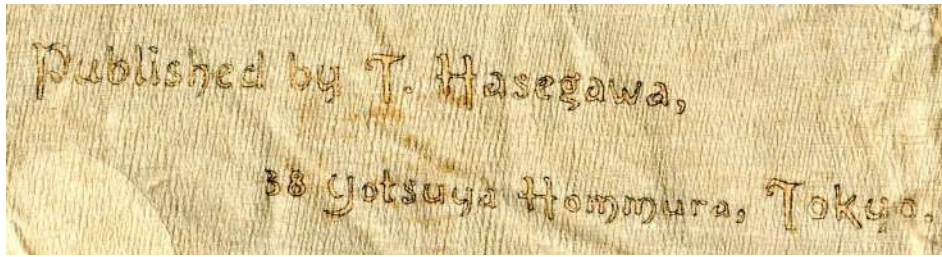 Published by T. Hasegawa,
38 Yotsuya Hommura, Tokyo.